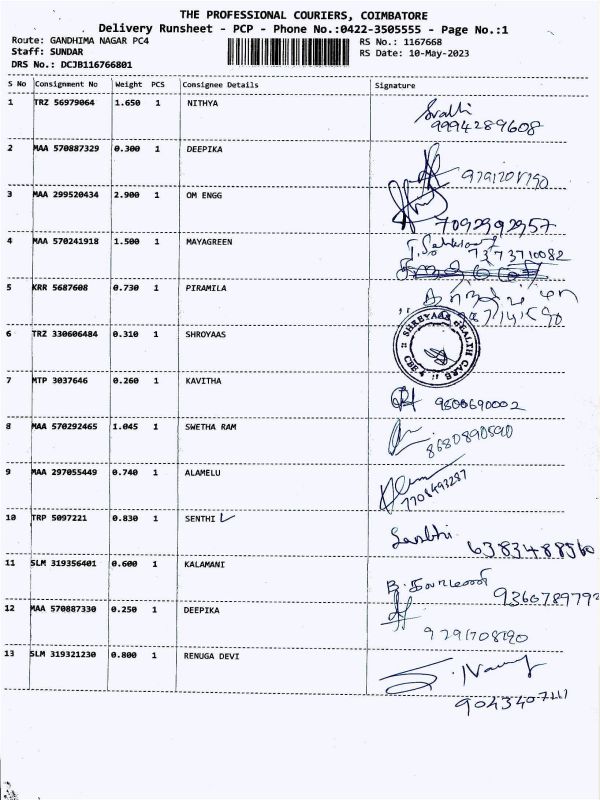 THE PROFESSIONAL COURIERS, COIMBATORE
Delivery Runsheet - PCP - Phone No.:0422-3505555 - Page No.:1
Route: GANDHIMA NAGAR PC4 RS No.: 1167668
Staff: SUNDAR RS Date: 10-May-2023
DRS No.: DCJB116766801
S No Consignment No Weight PCS Consignee Details Signature
1 TRZ 56979064 1.650 1 NITHYA
9994289608
2 MAA 570887329 0.300 1 DEEPIKA
3 MAA 299520434 2.900 1 OM ENGG
7092992957
4 MAA 570241918 1.500 1 MAYAGREEN
7373710082
5 KRR 5687608 0.730 1 PIRAMILA
6 TRZ 330606484 0.310 1 SHROYAAS
SHREYAAS HEALTH CARE
CBE 4
7 MTP 3037646 0.260 1 KAVITHA
9800690002
8 MAA 570292465 1.045 1 SWETHA RAM
8680890590
9 MAA 297055449 0.740 1 ALAMELU
7708493287
10 TRP 5097221 0.830 1 SENTHIL
6383488560
11 SLM 319356401 0.600 1 KALAMANI
9360789792
12 MAA 570887330 0.250 1 DEEPIKA
9791708190
13 SLM 319321230 0.800 1 RENUGA DEVI